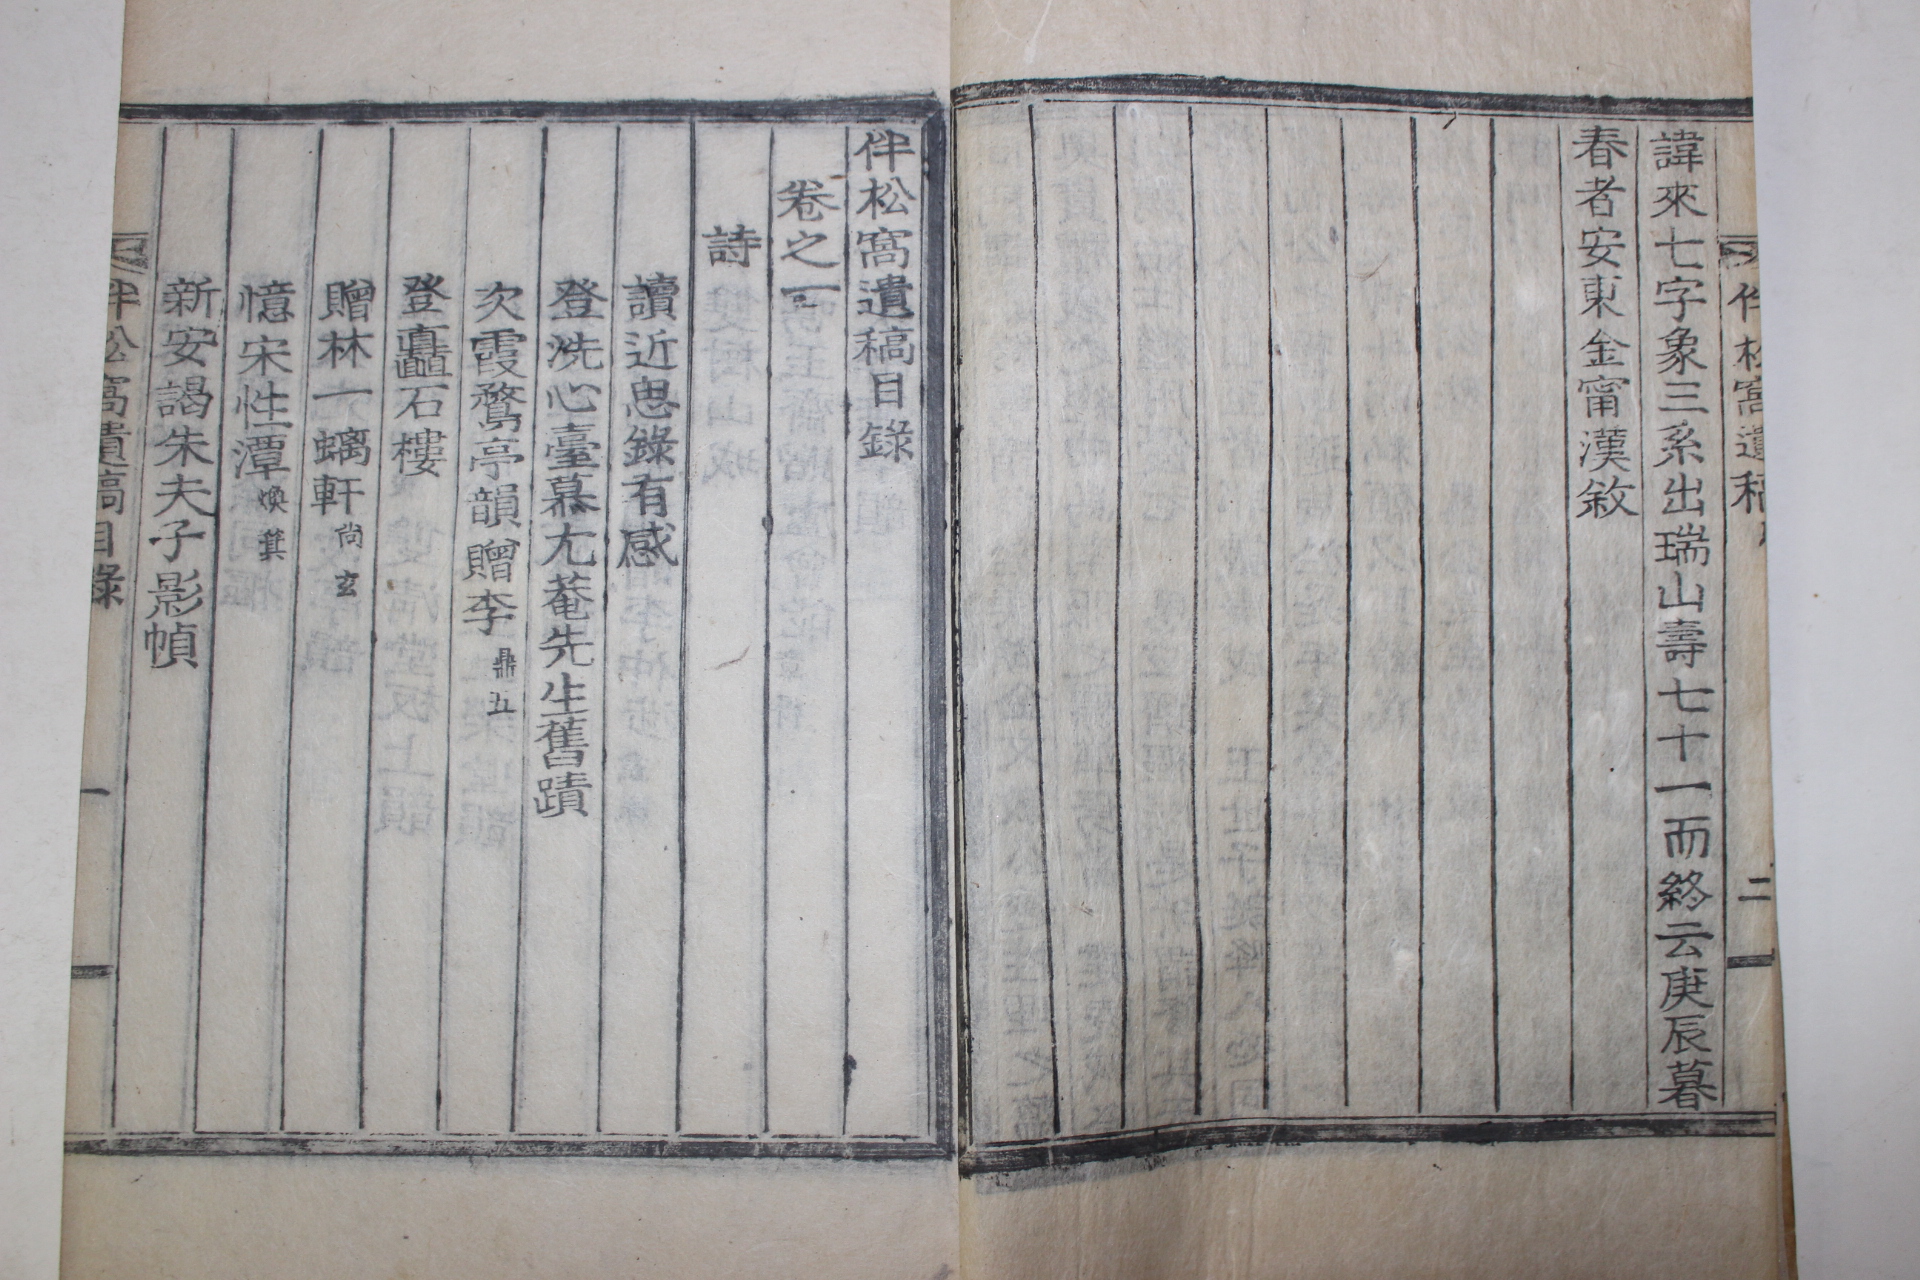 伴松窩遺稿序 二
諱來七字象三系出瑞山壽七十一而終云庚辰暮
春者安東金甯漢敘
伴松窩遺稿目錄
卷之一
詩
讀近思錄有感
登洗心臺慕尤菴先生舊蹟
次霞鶩亭韻贈李鼎五
登矗石樓
贈林一螭軒尙玄
憶宋性潭煥箕
新安謁朱夫子影幀
伴松窩遺稿目錄 一